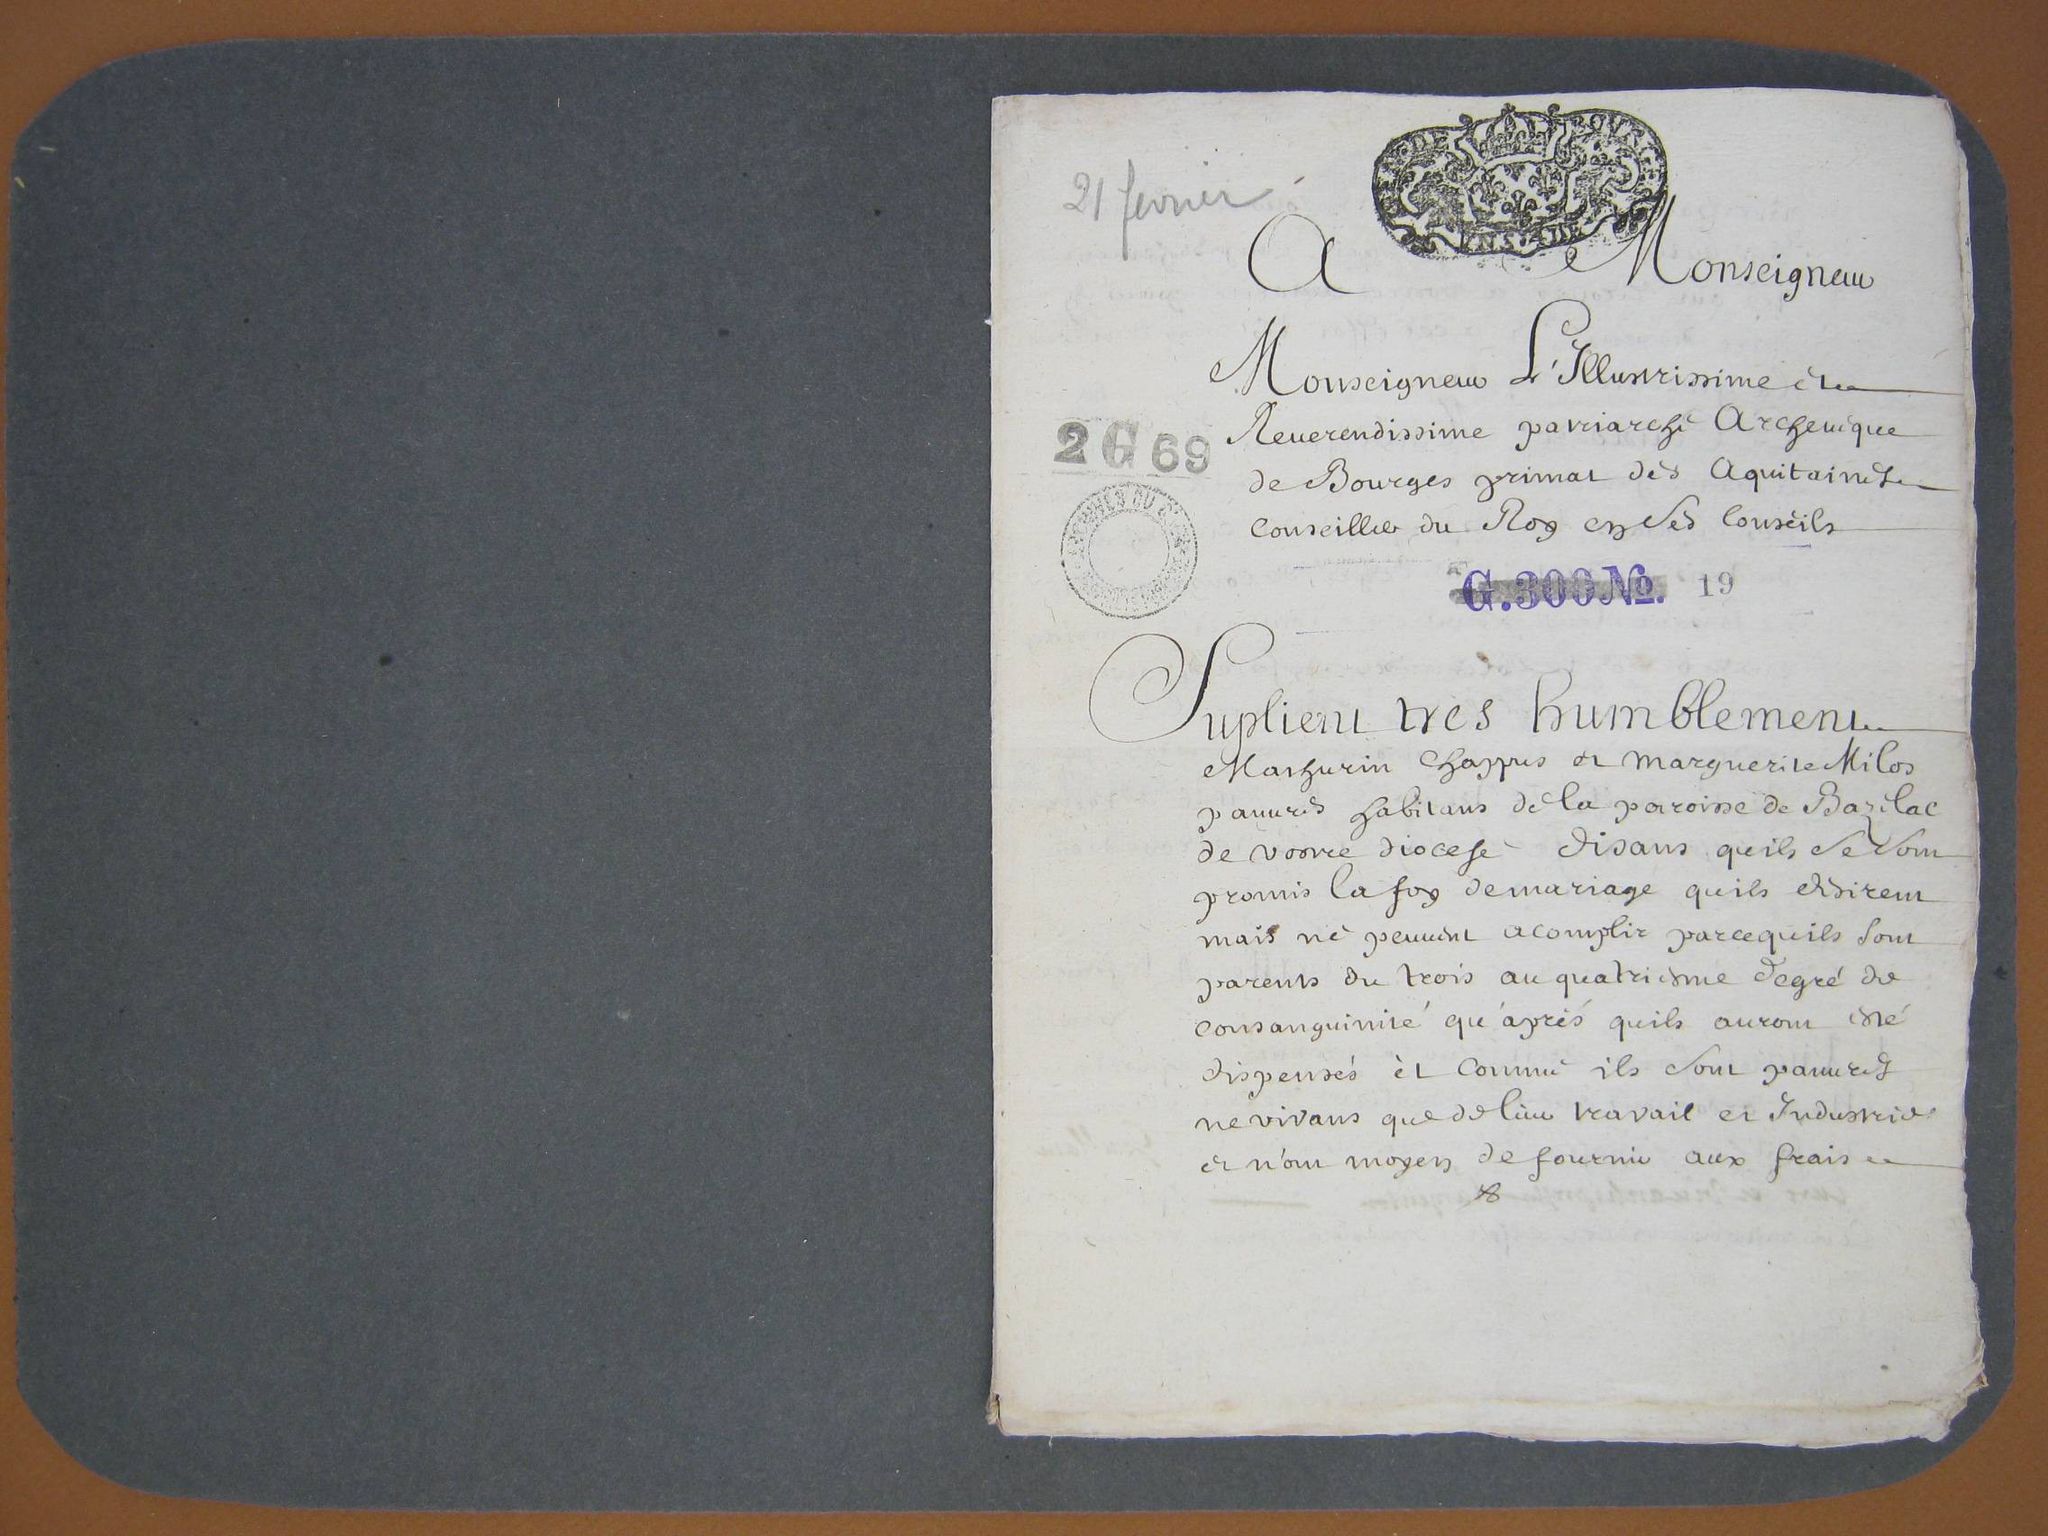 21 fevrier
A Monseigneur
Monseigneur L'Illustrissime et
Reuerendissime patriarche Archeuêque
2 G 69
de Bourges primat des Aquitaines
Conseiller du Roy en Ses Conseils
G.300 No. 19
Suplient tres humblement
Mathurin Chappus et Marguerite Milos
pauures habitans de la paroisse de Bazelac
de vostre diocese disans quils Se Sont
promis la foy de mariage quils desirent
mais ne peuuent acomplir parcequils Sont
parents du trois au quatriesme degré de
consanguinité qu'áprés quils auront esté
dispensés èt comme ils Sont pauures
ne vivans que de leur travail et Industrie
et n'ont moyen de fournir aux frais